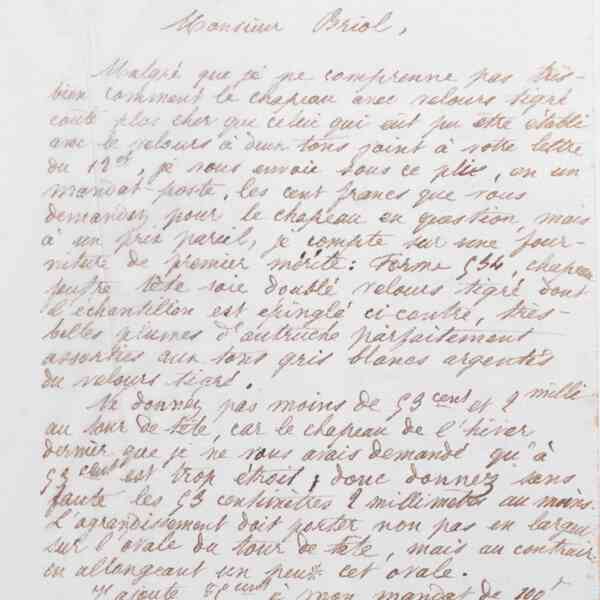 Monsieur Briol,
Malgré que je ne comprenne pas très-
bien comment le chapeau avec velours tigré
coûte plus cher que celui qui eût pu être établi
avec le velours à deux tons joint à votre lettre
du 12 ct, je vous envoie sous ce plis, en un
mandat-poste, les cent francs que vous
demandez pour le chapeau en question, mais
à un prix pareil, je compte sur une four-
niture de premier mérite: Forme 534, chapeau
feutre tête soie doublé velours tigré dont
l'echantillon est épinglé ci-contre, très-
belles plumes d'autruche parfaitement
assorties aux tons gris blancs argentés
du velours tigré.
Ne donnez pas moins de 53 cent et 2 milli-
au tour de tête, car le chapeau de l'hiver
dernier que je ne vous avais demandé qu'à
53 cent est trop étroit, donc donnez sans
faute les 53 centimètres 2 millimetrès au moins.
L'agrandissement doit porter non pas en largeur
sur l'ovale du tour de tête, mais au contraire
en allongeant un peu cet ovale.
J'ajoute à mon mandat de 100f